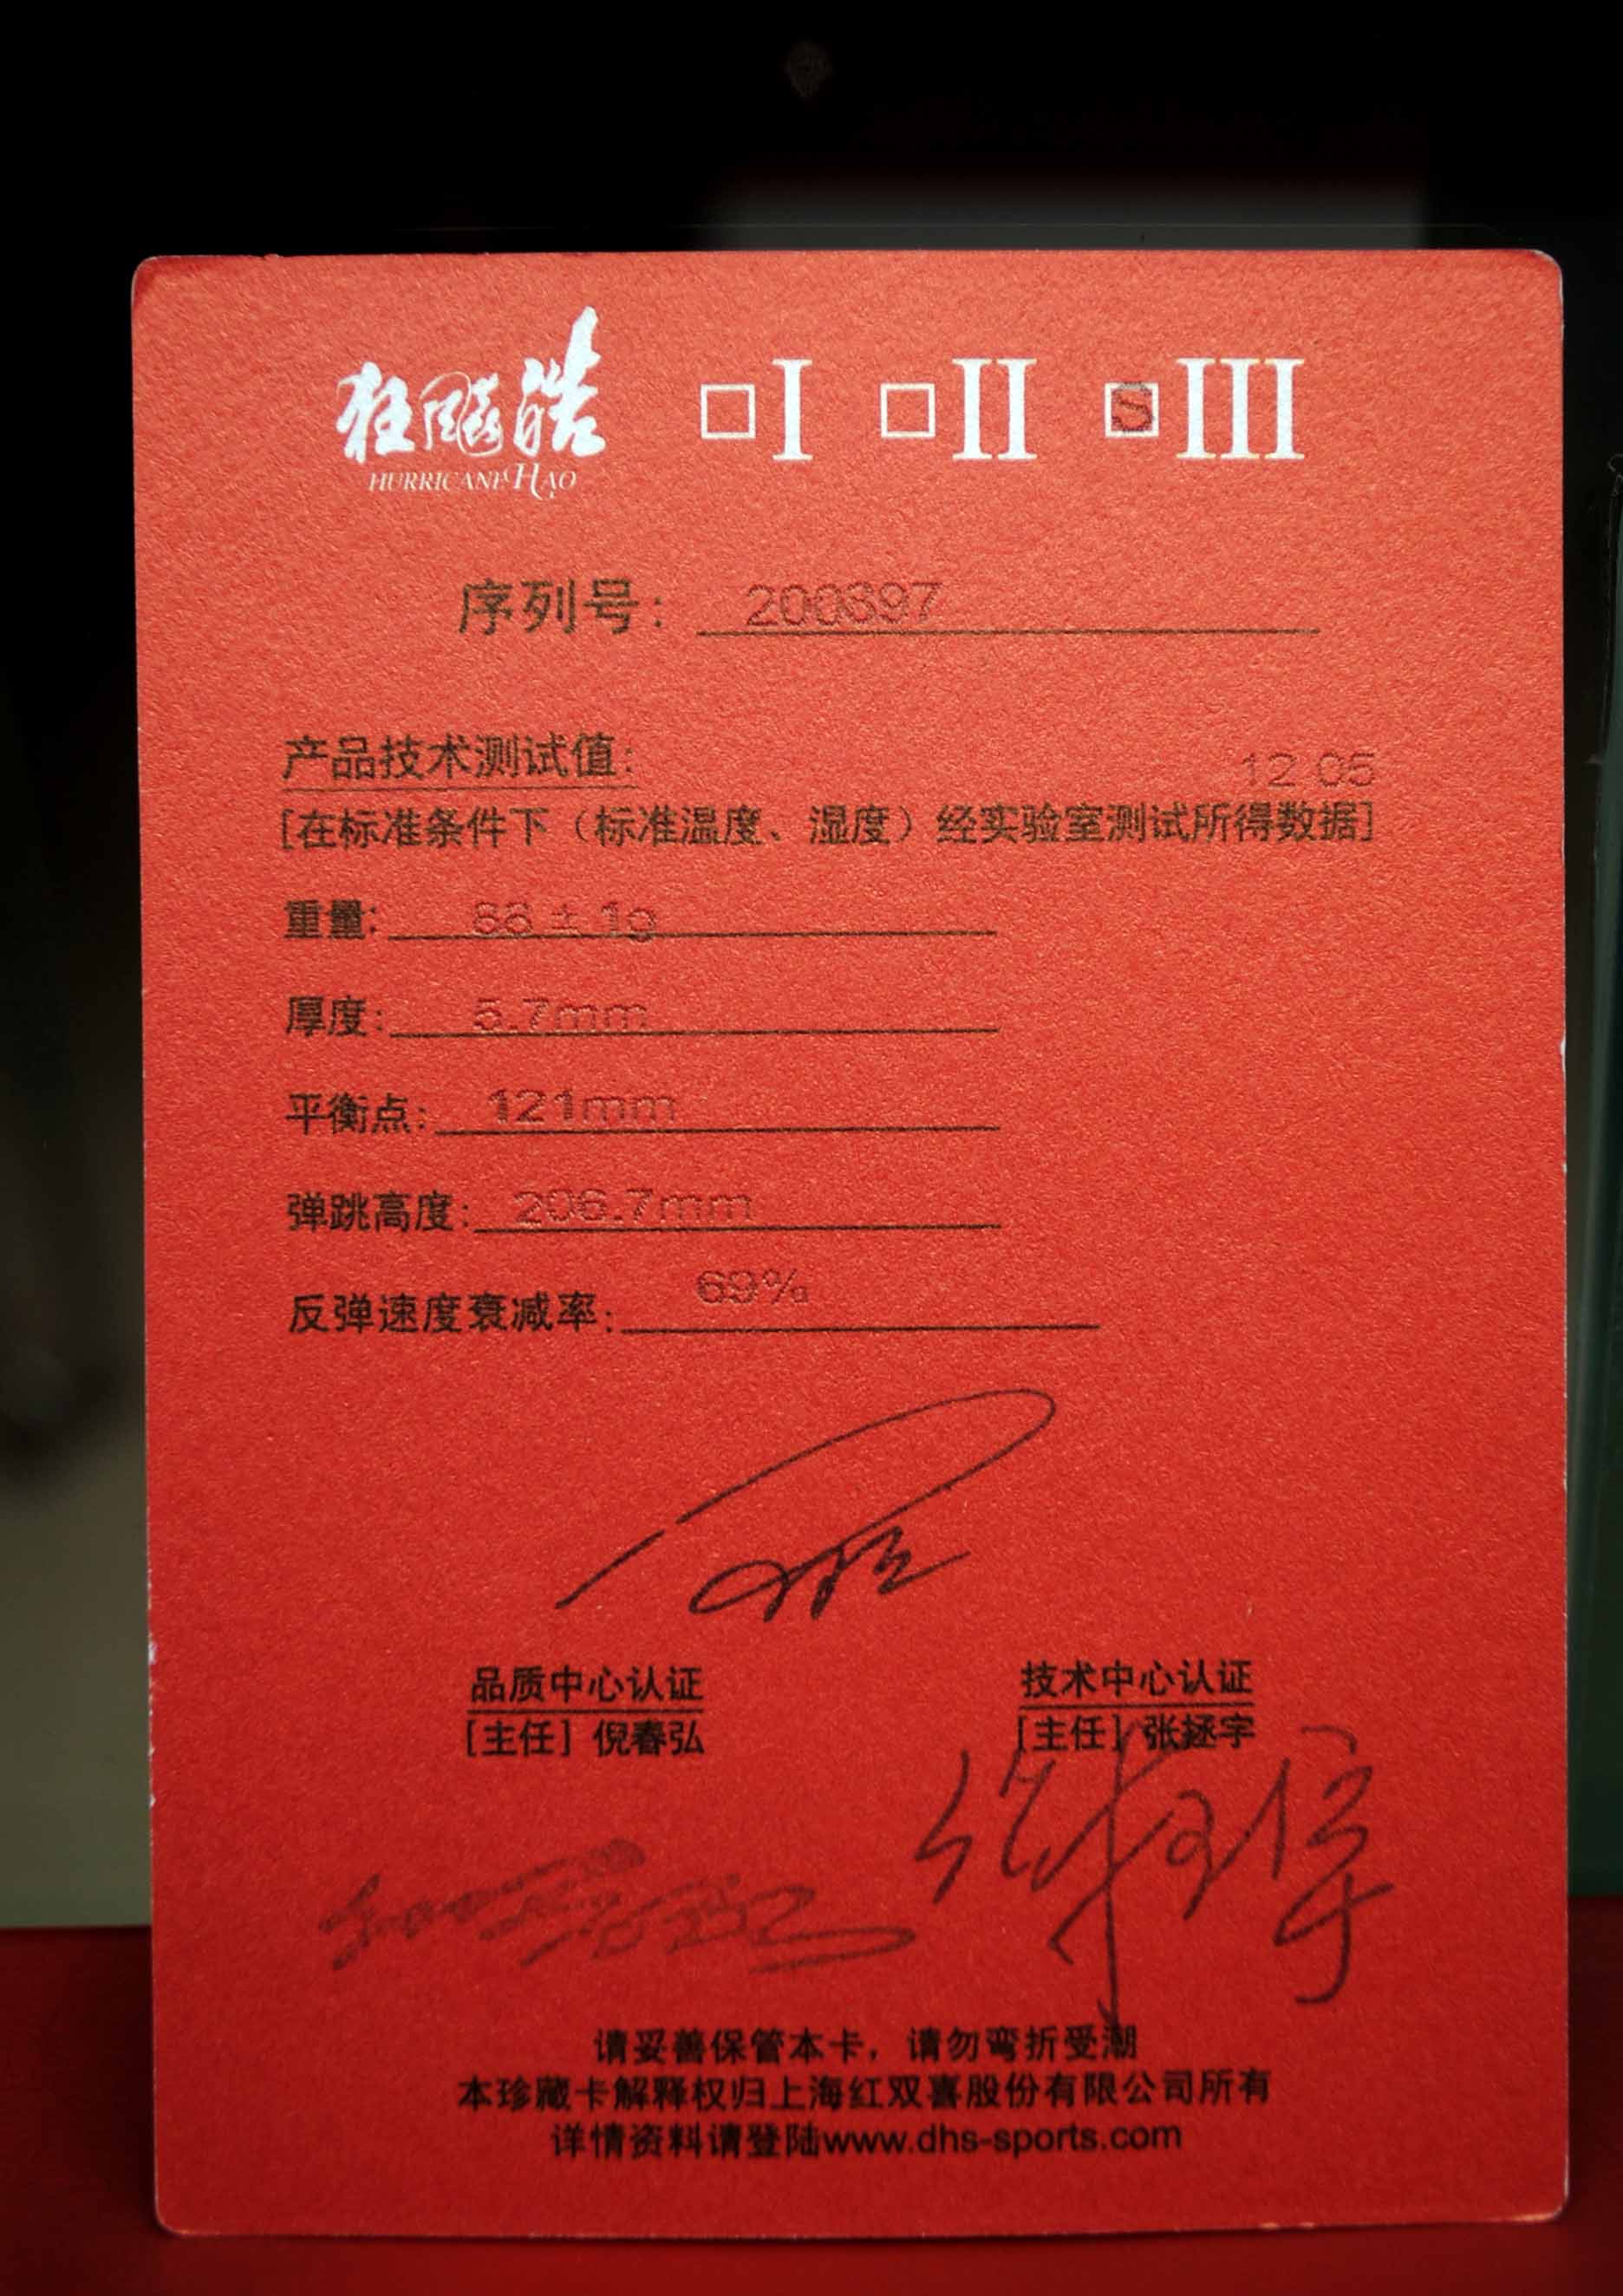 狂飚皓 □I □II □S III
HURRICANE HAO
序列号: 200397
产品技术测试值:
12 05
[在标准条件下（标准温度、湿度）经实验室测试所得数据]
重量: 88 ± 1g
厚度: 5.7mm
平衡点: 121mm
弹跳高度: 206.7mm
反弹速度衰减率: 69%
品质中心认证 技术中心认证
[主任] 倪春弘 [主任] 张拯宇
请妥善保管本卡，请勿弯折受潮
本珍藏卡解释权归上海红双喜股份有限公司所有
详情资料请登陆www.dhs-sports.com